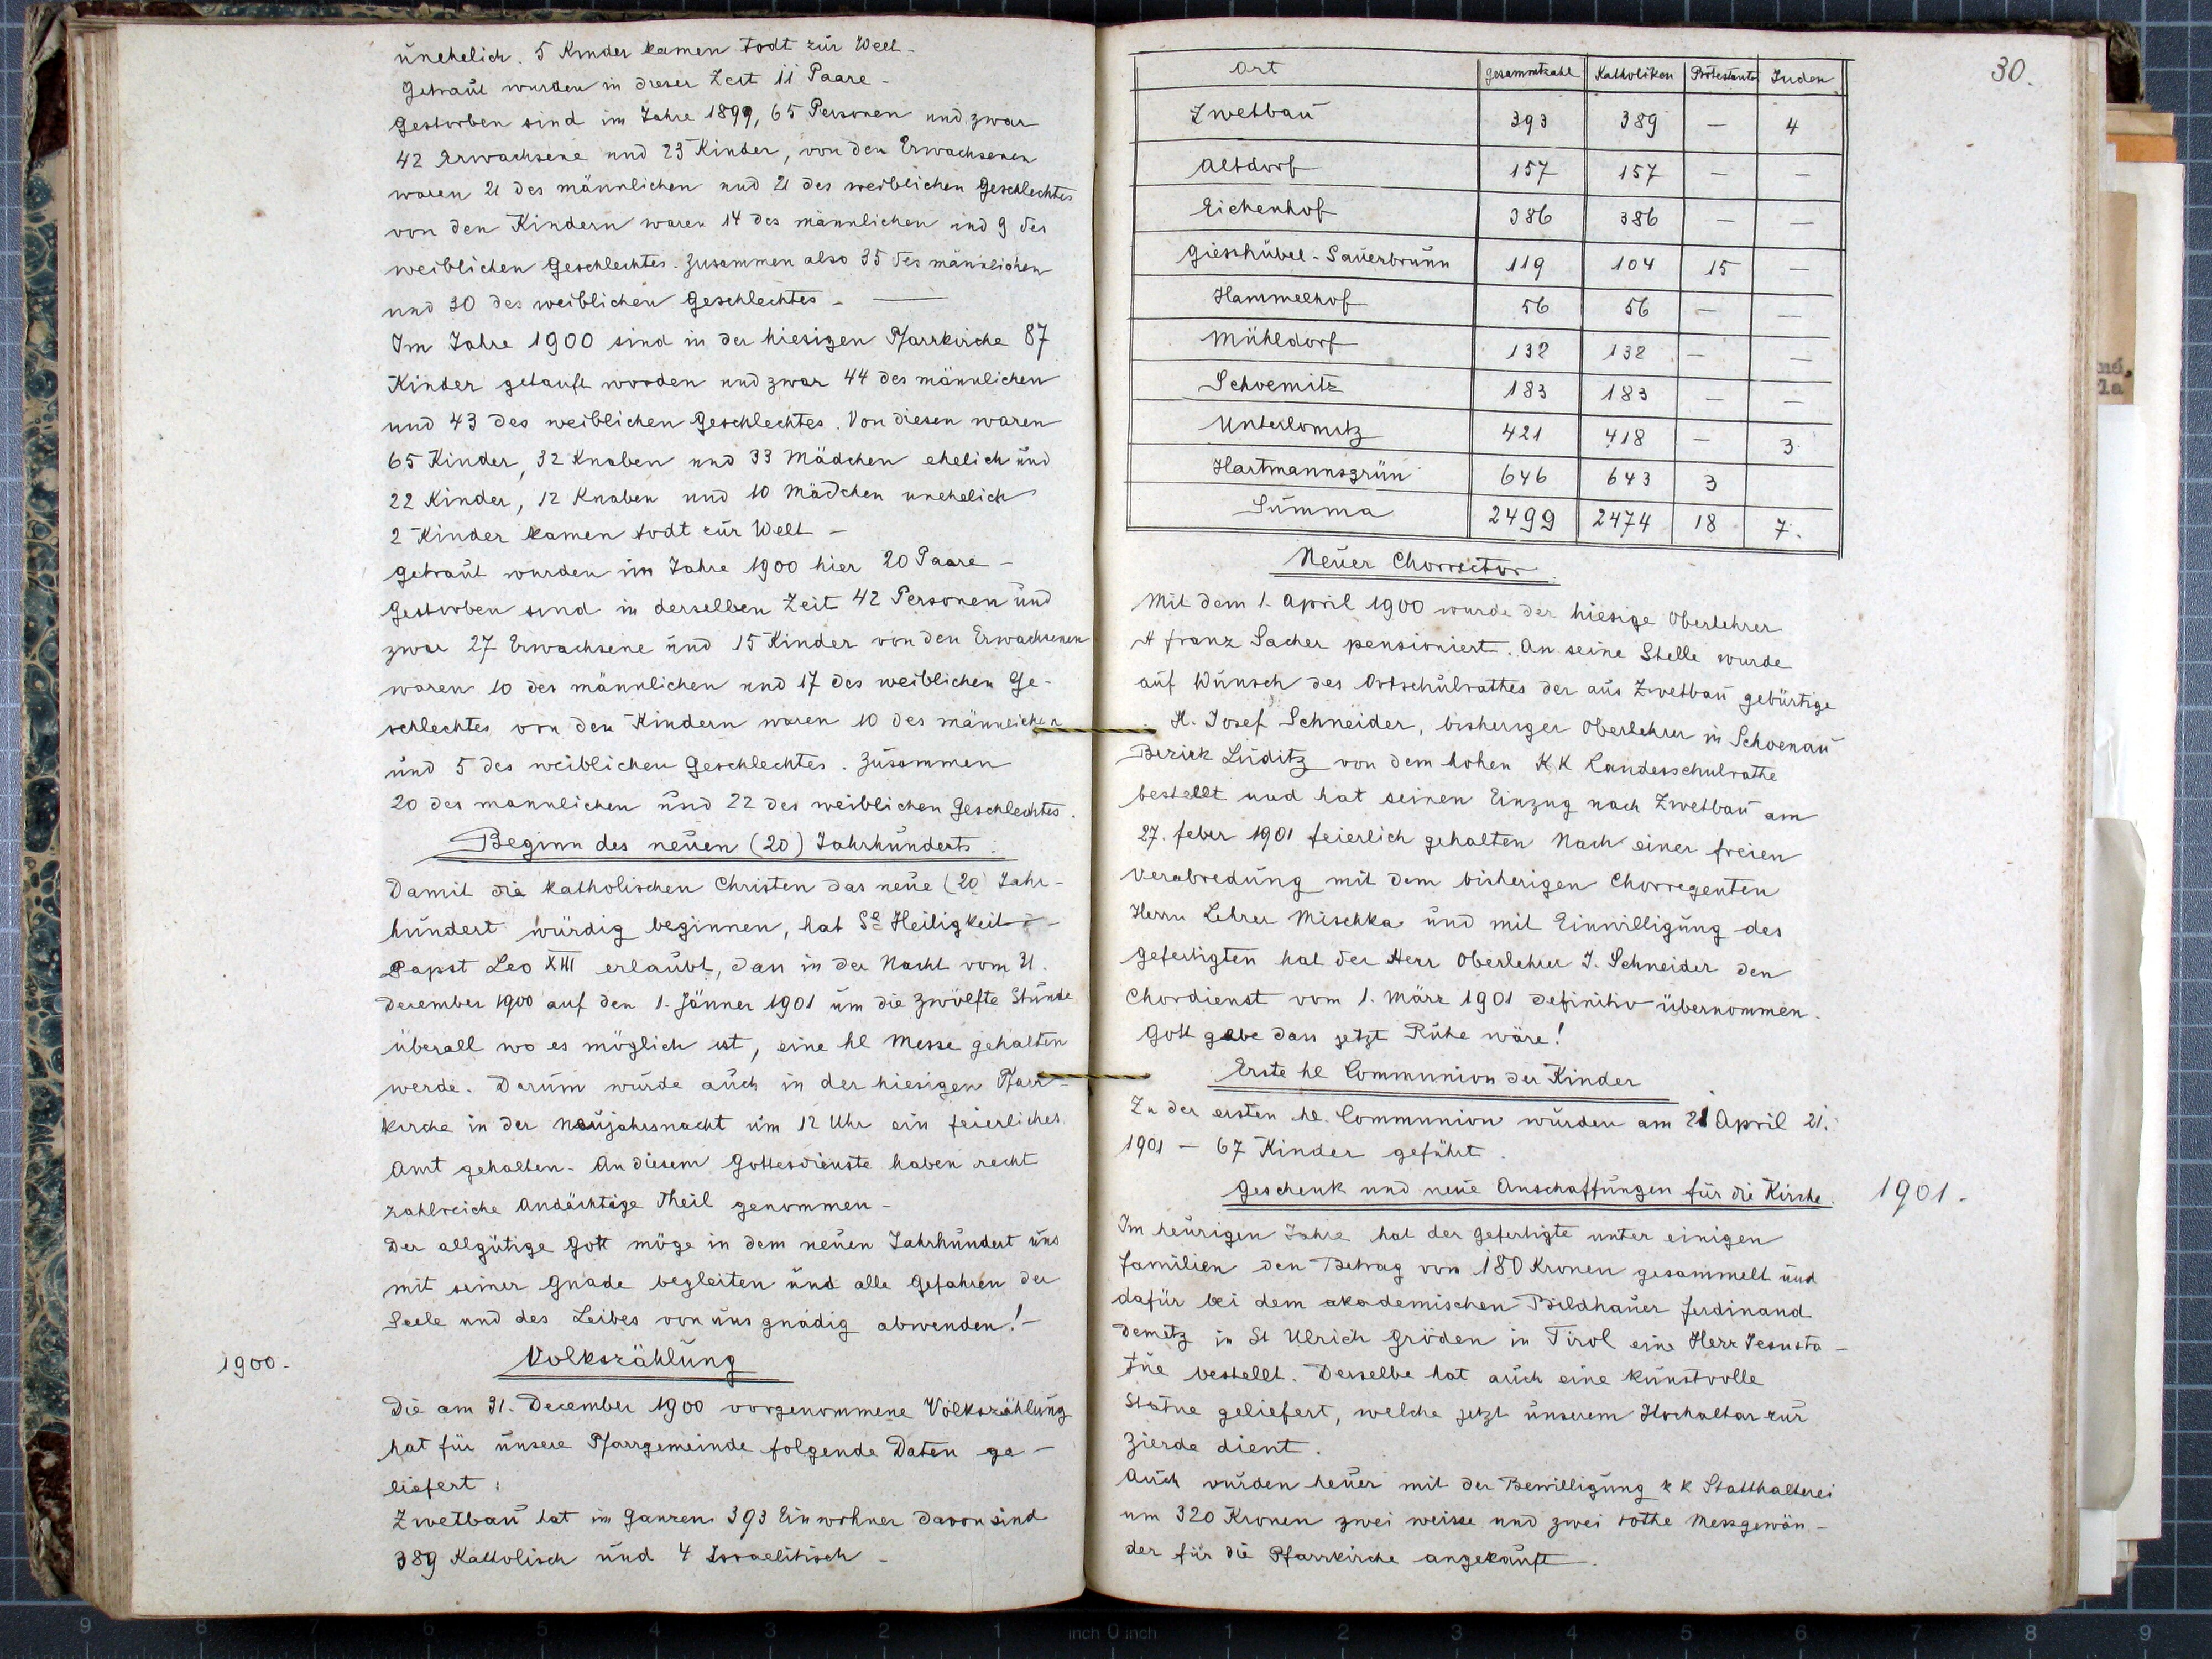 unehelich. 5 Kinder kamen todt zur Welt.
Getraut wurden in dieser Zeit 11 Paare -
Gestorben sind im Jahre 1899, 65 Personen und zwar
42 Erwachsene und 23 Kinder, von den Erwachsenen
waren 21 des männlichen und 21 des weiblichen Geschlechtes
von den Kindern waren 14 des männlichen und 9 des
weiblichen Geschlechtes. Zusammen also 35 des männlichen
und 30 des weiblichen Geschlechtes -
Im Jahre 1900 sind in der hiesigen Pfarrkirche 87
Kinder getauft worden und zwar 44 des männlichen
und 43 des weiblichen Geschlechtes. Von diesen waren
65 Kinder, 32 Knaben und 33 Mädchen ehelich und
22 Kinder, 12 Knaben und 10 Mädchen unehelich
2 Kinder kamen todt zur Welt -
Getraut wurden im Jahre 1900 hier 20 Paare -
Gestorben sind in derselben Zeit 42 Personen und
zwar 27 Erwachsene und 15 Kinder von den Erwachsenen
waren 10 des männlichen und 17 des weiblichen Ge-
schlechtes von den Kindern waren 10 des männlichen
und 5 des weiblichen Geschlechtes. Zusammen
20 des mannlichen und 22 des weiblichen Geschlechtes.
Beginn des neuen (20) Jahrhunderts.
Damit die katholischen Christen das neue (20) Jahr-
hundert würdig beginnen, hat Se Heiligkeit
Papst Leo XIII erlaubt, dass in der Nacht vom 31.
December 1900 auf den 1. Jänner 1901 um die zwölfte Stunde
überall wo es möglich ist, eine hl Messe gehalten
werde. Darum wurde auch in der hiesigen Pfarr-
kirche in der Neujahrsnacht um 12 Uhr ein feierliches
Amt gehalten. An diesem Gottesdienste haben recht
zahlreiche Andächtige Theil genommen -
Der allgütige Gott möge in dem neuen Jahrhundert uns
mit seiner Gnade begleiten und alle Gefahren der
Seele und des Leibes von uns gnädig abwenden! -
1900. Volkszählung
Die am 31. December 1900 vorgenommene Volkszählung
hat für unsere Pfarrgemeinde folgende Daten ge-
liefert:
Zwetbau hat im Ganzen 393 Einwohner davon sind
389 Katholisch und 4 Israelitisch -
30.
Ort Gesammtzahl Katholiken Protestanten Juden
Zwetbau 393 389 — 4
Altdorf 157 157 — —
Eichenhof 386 386 — —
Gieshübel-Sauerbrunn 119 104 15 —
Hammelhof 56 56 — —
Mühldorf 138 138 — —
Schoemitz 183 183 — —
Unterlomitz 421 418 — 3
Hartmannsgrün 646 643 3
Summa 2499 2474 18 7.
Neuer Chorrector.
Mit dem 1. April 1900 wurde der hiesige Oberlehrer
H Franz Sacher pensioniert. An seine Stelle wurde
auf Wunsch des Ortschulrathes der aus Zwetbau gebürtige
H. Josef Schneider, bisheriger Oberlehrer in Schoenau
Bezirk Luditz von dem hohen K K Landesschulrathe
bestellt und hat seinen Einzug nach Zwetbau am
27. Feber 1901 feierlich gehalten Nach einer freien
Verabredung mit dem bisherigen Chorregenten
Herrn Lehrer Mischka und mit Einwilligung des
Gefertigten hat der Herr Oberlehrer J. Schneider den
Chordienst vom 1. März 1901 definitiv übernommen.
Gott gebe dass jetzt Ruhe wäre!
Erste hl Communion der Kinder
Zu der ersten hl. Communion wurden am 21 April 21.
1901 — 67 Kinder geführt.
Geschenk und neue Anschaffungen für die Kirche. 1901.
Im heurigen Jahre hat der Gefertigte unter einigen
Familien den Betrag von 180 Kronen gesammelt und
dafür bei dem akademischen Bildhauer Ferdinand
Demetz in St Ulrich Gröden in Tirol eine Herz Jesusta-
tue bestellt. Derselbe hat auch eine kunstvolle
Statue geliefert, welche jetzt unserem Hochaltar zur
Zierde dient.
Auch wurden heuer mit der Bewilligung k k Statthalterei
um 320 Kronen zwei weisse und zwei rothe Messgewän-
der für die Pfarrkirche angekauft.